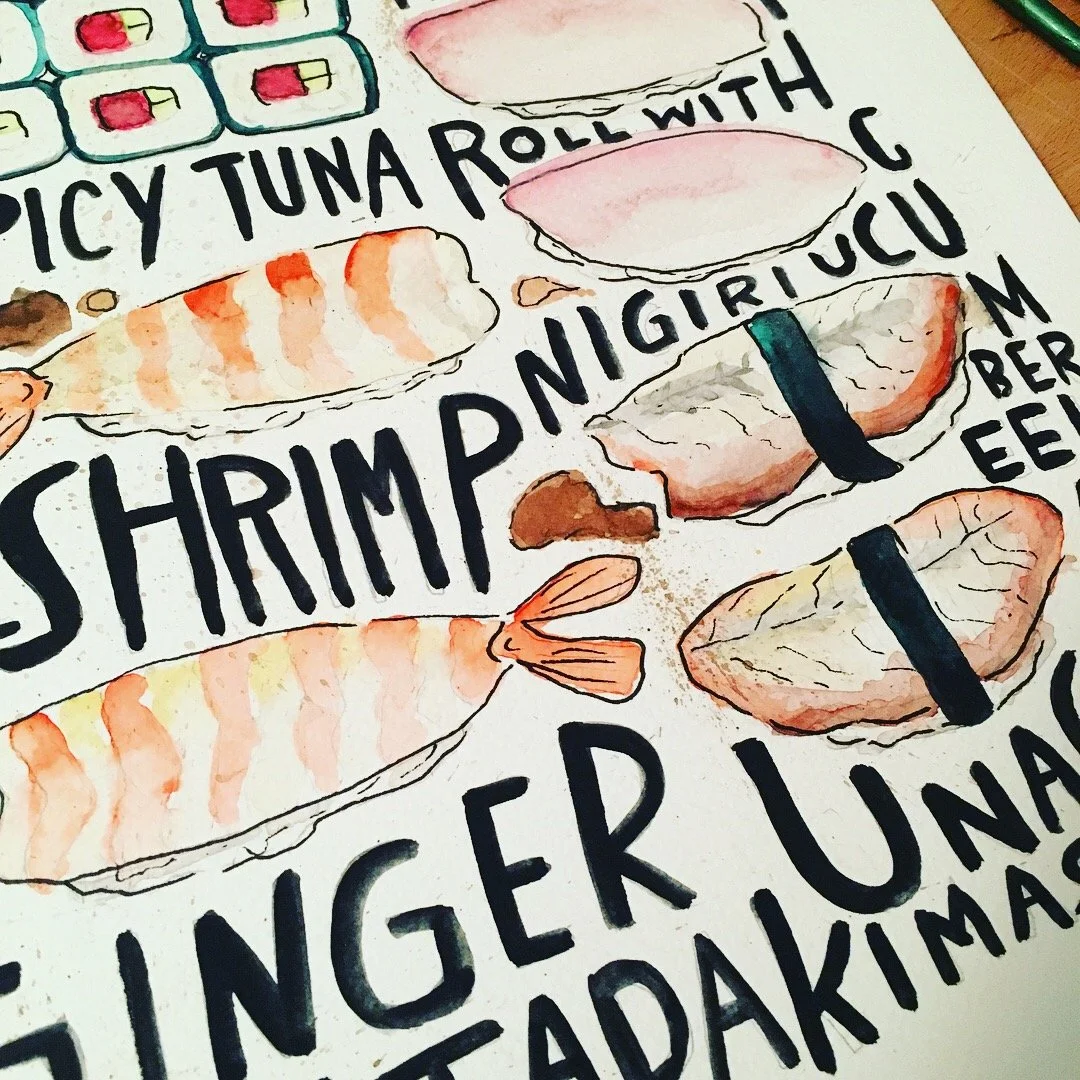 PICY TUNA ROLL WITH
C
SHRIMP NIGIRI UCU
M
BER
EEL
GINGER UNAG
TADAKIMAS